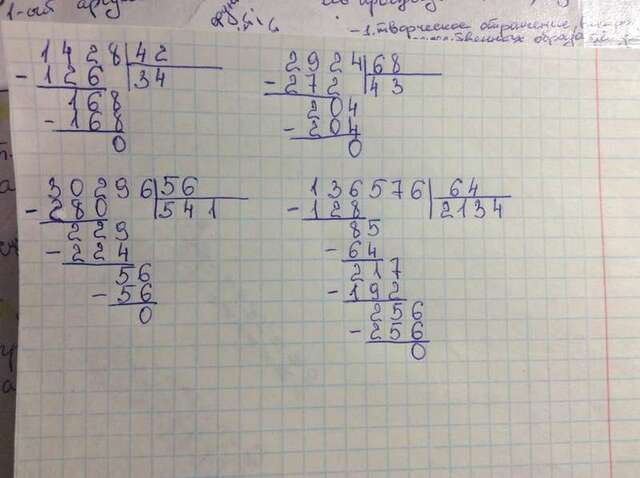 1-ый
- 1. творческое отражение,
1428 | 42
- 126 | 34
168
- 168
0
2924 | 68
- 272 | 43
204
- 204
0
30296 | 56
- 280 | 541
229
- 224
56
- 56
0
136576 | 64
- 128 | 2134
85
- 64
217
- 192
256
- 256
0